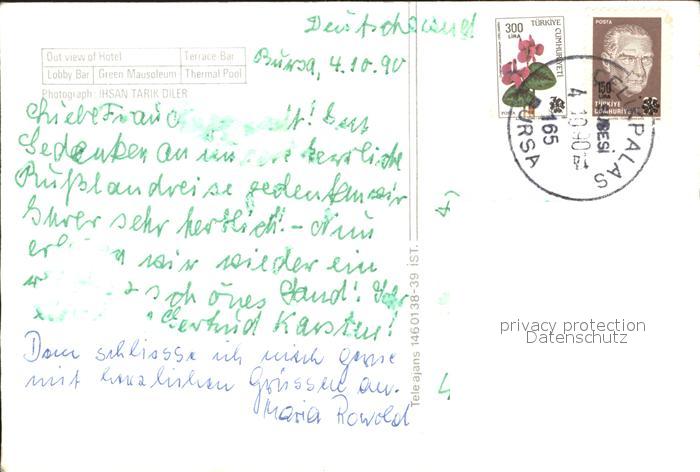 Deutschland
Bursa, 4.10.90
Out view of Hotel Terrace-Bar
Lobby Bar Green Mausoleum Thermal Pool
Photograph : IHSAN TARIK DILER
Liebe Frau
Gedenken an herzliche
Rußlandreise gedenken wir
Ihrer sehr herzlich! - Nun
wir wieder ein
schönes Land! Ihr
Gertrud Karsten!
Dem schliesse ich mich gerne
mit herzlichen Grüssen an.
Maria Rowold
Teleajans 1460138-39 İST.
300
LİRA
TÜRKİYE
CUMHURİYETİ
POSTA
POSTA
150
LİRA
TÜRKİYE
CUMHURİYETİ
PALAS
4.10.90
165
BURSA
privacy protection
Datenschutz